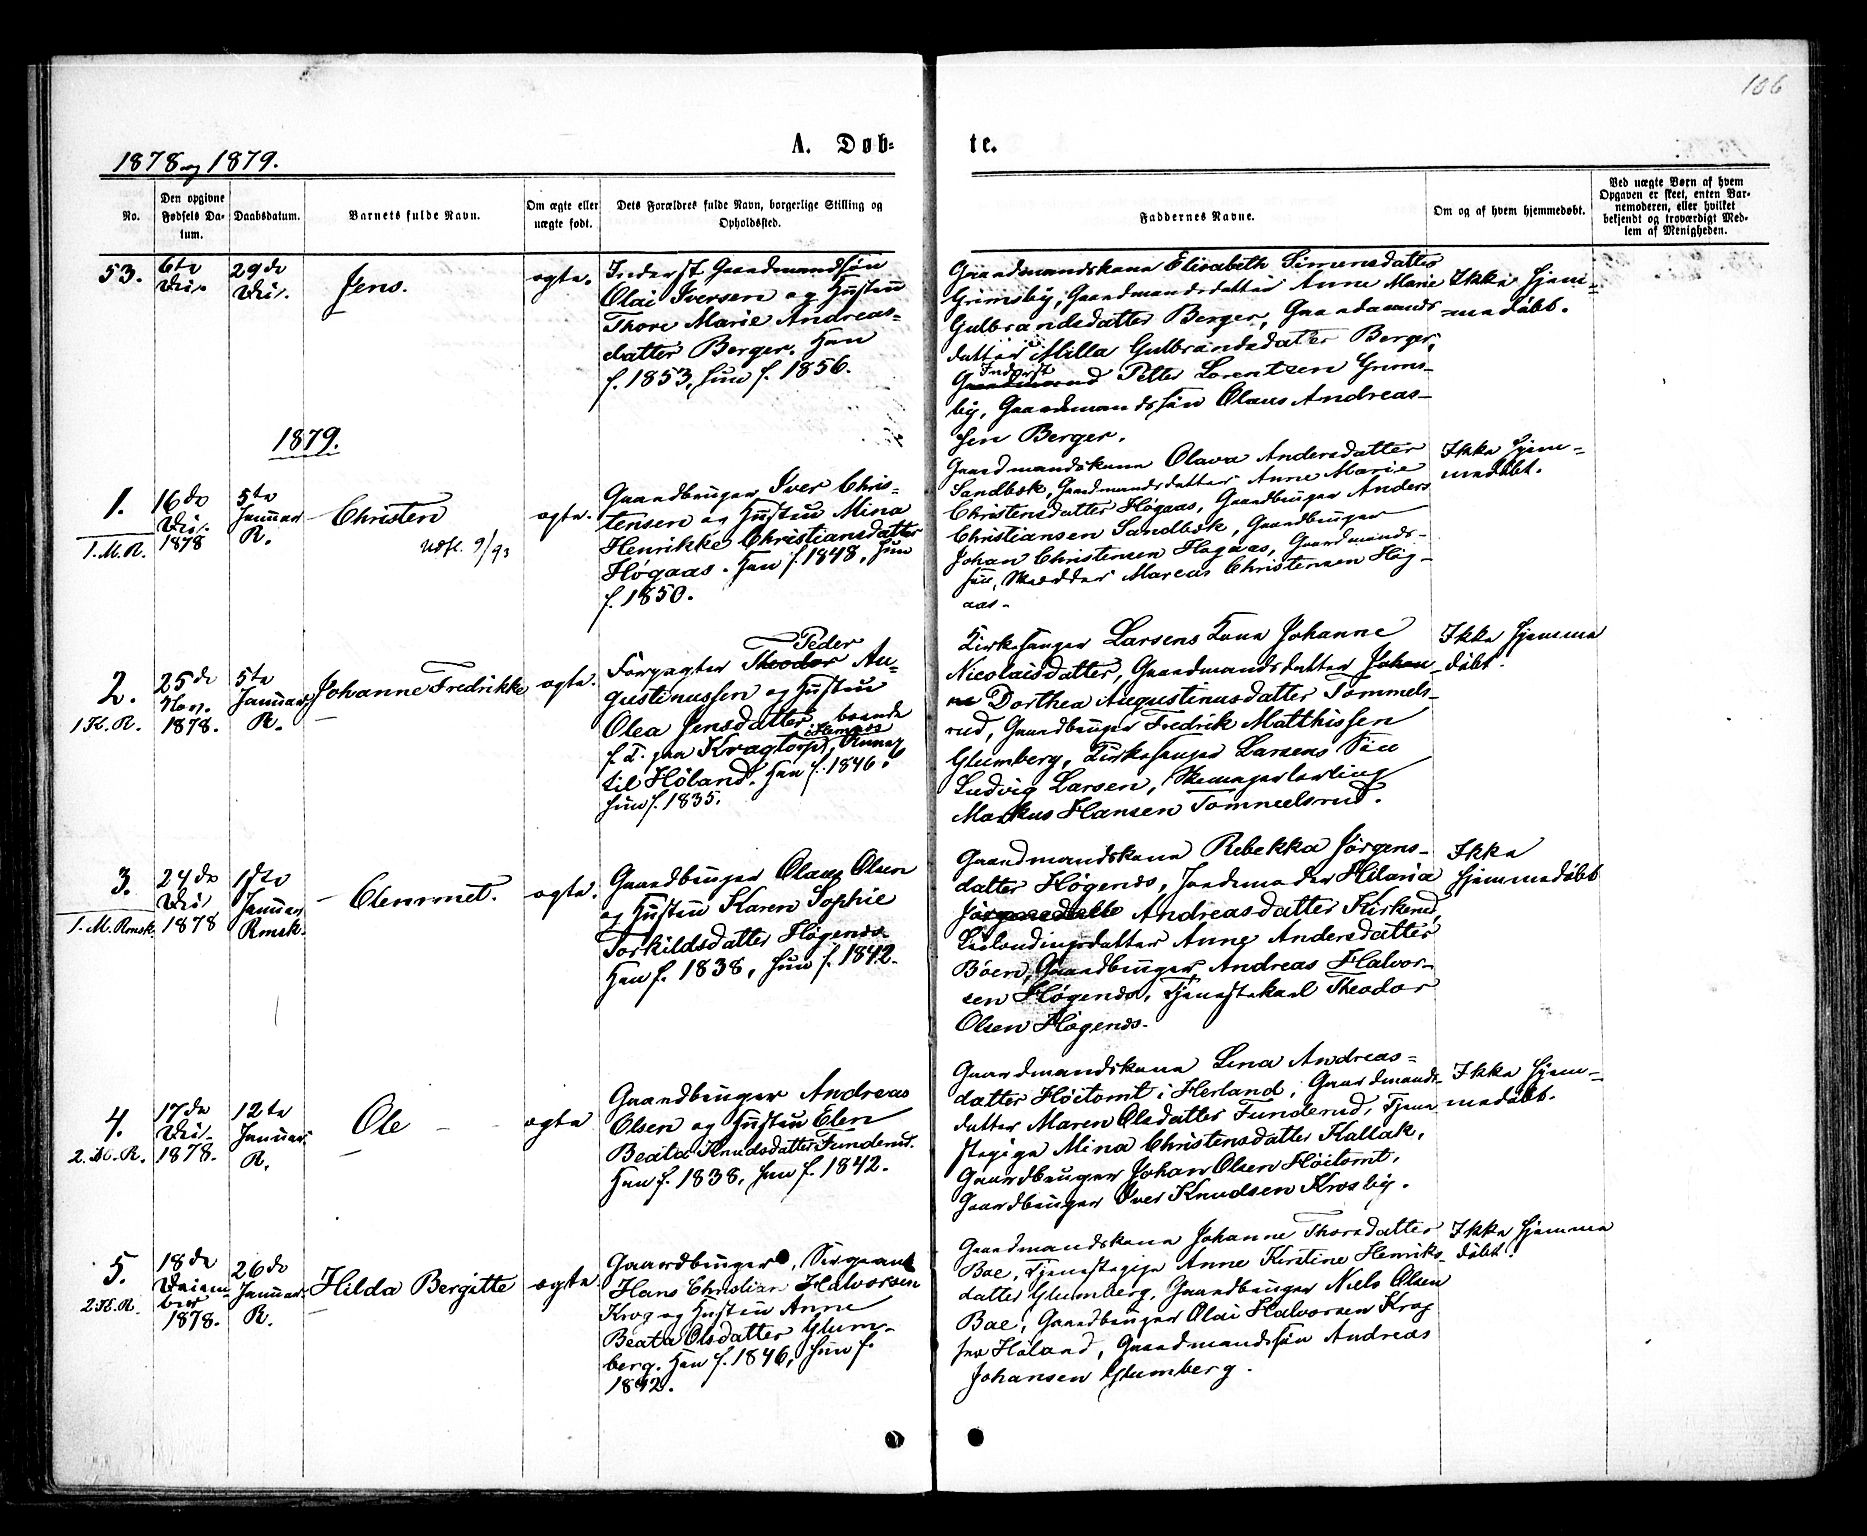 106
1878 og 1879.
A. Døb-
te.
No.
Den opgivne
Fødsels Da-
tum.
Daabsdatum.
Barnets fulde Navn.
Om ægte eller
uægte født.
Dets Forældres fulde Navn, borgerlige Stilling og
Opholdssted.
Faddernes Navne.
Om og af hvem hjemmedøbt.
Ved uægte Børn af hvem
Opgaven er skeet, enten Bar-
nemoderen, eller hvilket
bekjendt og troværdigt Med-
lem af Menigheden.
53.
6te
Dec.
29de
Dec.
Jens.
ægte.
Inderst, Gaardmandssøn
Olai Iversen og Hustru
Thore Marie Andreas-
datter Berger. Han
f. 1853, hun f. 1856.
Gaardmandskone Elisabeth Simensdatter
Grimsby, Gaardmandsdatter Anne Marie
Gulbrandsdatter Berger, Gaardmands-
datter Milla Gulbrandsdatter Berger,
Inderst
Gaardmand Petter Lorentzen Grims-
by, Gaardmandssøn Olaus Andreas-
sen Berger.
Ikke hjem-
medøbt.
1879.
1.
1. M. R.
16de
Dec.
1878
5te
Januar
R.
Christen
Udfl. 9/93
ægte.
Gaardbruger Iver Chris-
tensen og Hustru Mina
Henrikke Christiansdatter
Høgaas. Han f. 1848, hun
f. 1850.
Gaardmandskone Olava Andersdatter
Sandbæk, Gaardmandsdatter Anne Marie
Christensdatter Høgaas, Gaardbruger Anders
Christiansen Sandbæk, Gaardbruger
Johan Christensen Høgaas, Gaardmands-
søn, Skrædder Marcus Christensen Høg-
aas.
Ikke hjem-
medøbt.
2.
1 K. R.
25de
Nov.
1878.
5te
Januar
R.
Johanne Fredrikke
ægte.
Peder
Forpagter Theodor Au-
gustinussen og Hustru
Olea Jensdatter, boende
i Hemnæs
f. T. paa Kragtorp, Annex
til Høland. Han f. 1846.
hun f. 1835.
Kirkesanger Larsens Kone Johanne
Nicolaisdatter, Gaardmandsdatter Johan-
ne Dorthea Augustinusdatter Tømmels-
rud, Gaardbruger Fredrik Matthissen
Glumberg, Kirkesanger Larsens Søn
Ludvig Larsen, Skomagerlærling
Markus Hansen Tømmelsrud.
Ikke hjemme
døbt.
3.
1. M. Rmsk.
24de
Dec
1878
1ste
Januar
Rmsk.
Clemmet.
ægte.
Gaardbruger Olaus Olsen
og Hustru Karen Sophie
Torkildsdatter Høgenæs.
Han f. 1838, hun f. 1842.
Gaardmandskone Rebekka Jørgens-
datter Høgenæs, Jordemoder Helaria
Jørgensdatte Andreasdatter Kirkerud,
Leilændingsdatter Anne Andersdatter
Bøen, Gaardbruger Andreas Halvor-
sen Høgenæs, Tjenestekarl Theodor
Olsen Høgenæs.
Ikke
hjemmedøbt
4.
2. M. R.
17de
Dec.
1878.
12te
Januar
R.
Ole
ægte
Gaardbruger Andreas
Olsen og Hustru Elen
Beata Knudsdatter Funderud.
Han f. 1838, hun f. 1842.
Gaardmandskone Lena Andreas-
datter Høitomt i Herland, Gaardmands-
datter Maren Olsdatter Funderud, Tjene
stepige Mina Christensdatter Kallak,
Gaardbruger Johan Olsen Høitomt,
Gaardbruger Iver Knudsen Krosby.
Ikke hjem-
medøbt.
5.
2 K. R.
18de
Decem-
ber
1878.
26de
Januar
R.
Hilda Bergitte
ægte
Gaardbruger, Sergeant
Hans Christian Halvorsen
Krog og Hustru Anne
Beata Olsdatter Glum-
berg. Han f. 1846, hun f.
1842.
Gaardmandskone Johanne Thorsdatter
Bae, Tjenestepige Anne Kirstine Henriks-
datter Glumberg, Gaardbruger Niels Olsen
Bae, Gaardbruger Olai Halvorsen Krog
fra Høland, Gaardmandssøn Andreas
Johansen Glumberg.
Ikke hjemme
døbt.